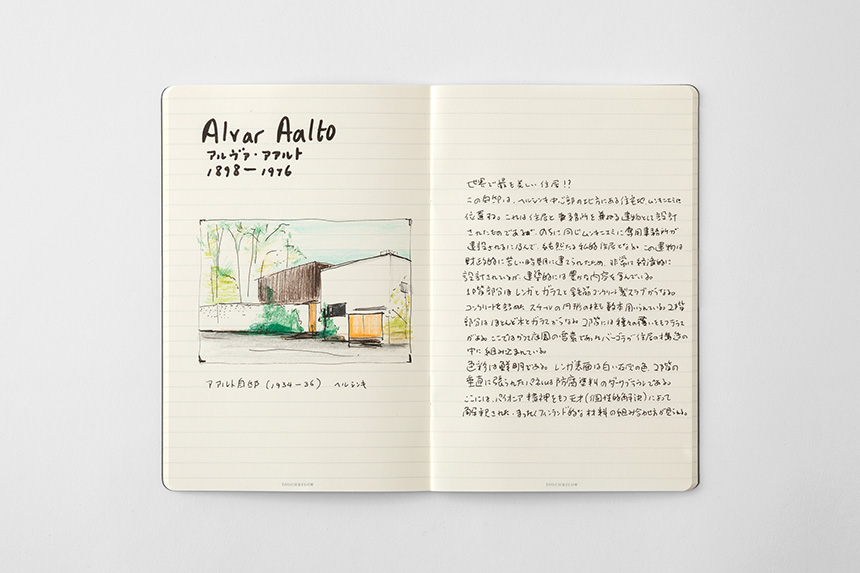 Alvar Aalto
アルヴァ・アアルト
1898ー1976
アアルト自邸 (1934-36) ヘルシンキ
世界で最も美しい住居!?
この自邸は、ヘルシンキ中心部の北方にある住宅地ムンキニエミに
位置する。これは住居と事務所を兼ねる建物として設計
されたものであるが、のちに同じムンキニエミに専用事務所が
建設されるに及んで、純然たる私的住居となる。この建物は
財政的に苦しい時期に建てられたため、非常に経済的に
設計されているが、建築的には豊かな内容を含んでいる。
1階部分はレンガとガラスと鉄筋コンクリート製スラブからなる。
コンクリートを詰めた スチールの円形の柱も数本用いられている。2階
部分はほとんど木とガラスからなる。2階には種々の覆いをもつテラス
がある。ここではかつて庭園の要素であったパーゴラが住居の構造の
中に組み込まれている。
色彩は鮮明である。レンガ表面は白い石灰の色、2階の
垂直に張られたパネルは防腐塗料のダークブラウンである。
ここには、パイオニア精神をもつ (個性的解決) によって
解釈された、まったくフィンランド的な材料の組み合わせ方が見られる。